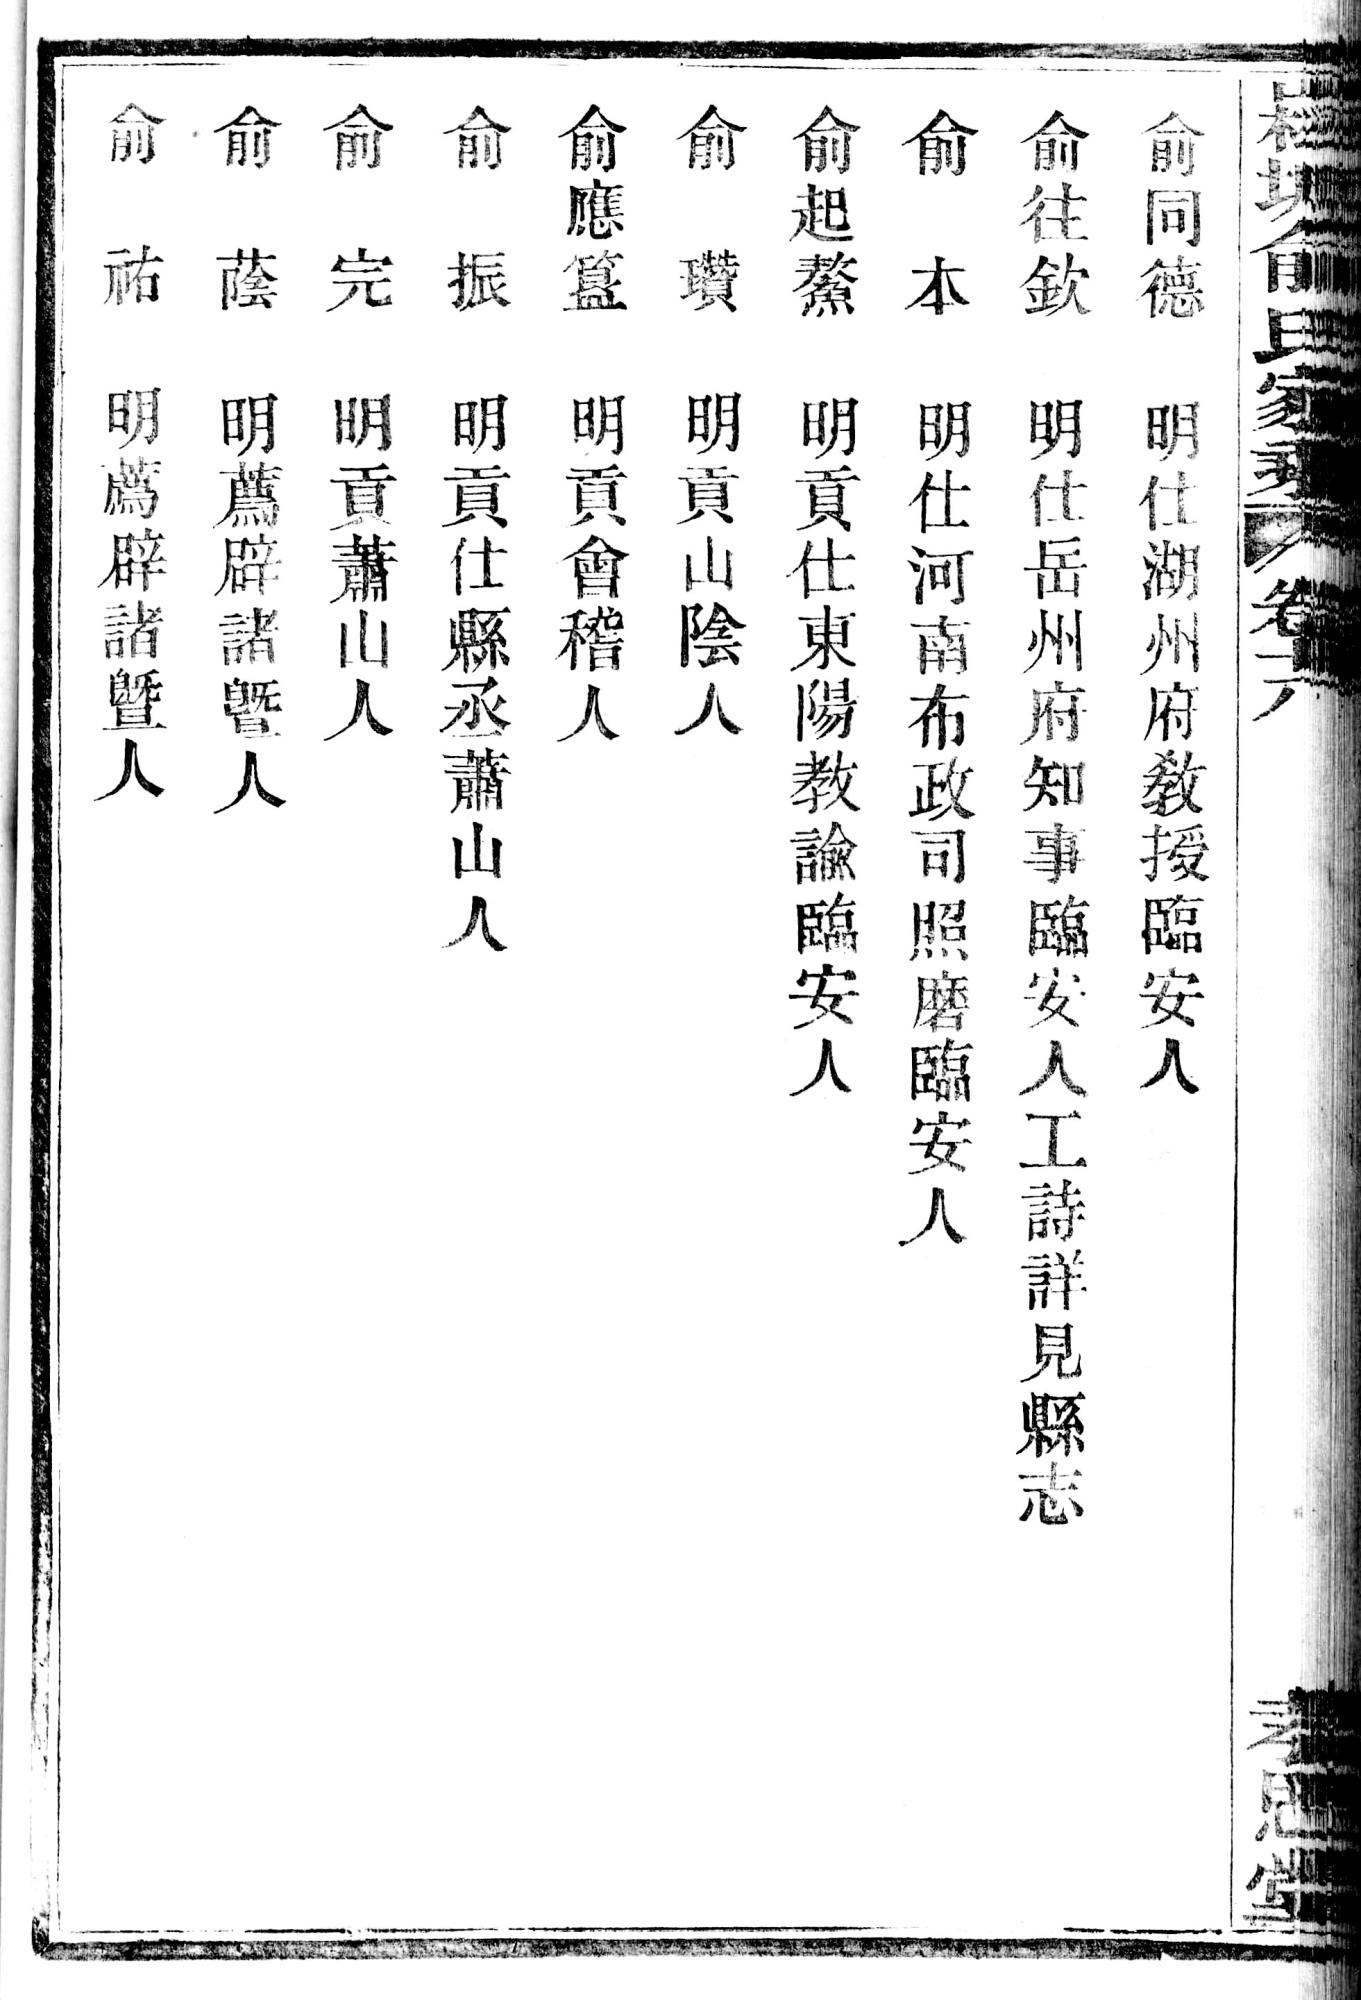 俞同德　明仕湖州府教授臨安人
俞往欽　明仕岳州府知事臨安人工詩詳見縣志
俞　本　明仕河南布政司照磨臨安人
俞起鰲　明貢仕東陽教諭臨安人
俞　瓚　明貢山陰人
俞應簋　明貢會稽人
俞　振　明貢仕縣丞蕭山人
俞　完　明貢蕭山人
俞　蔭　明薦辟諸暨人
俞　祐　明薦辟諸暨人
俞氏家乘 卷
孝思堂